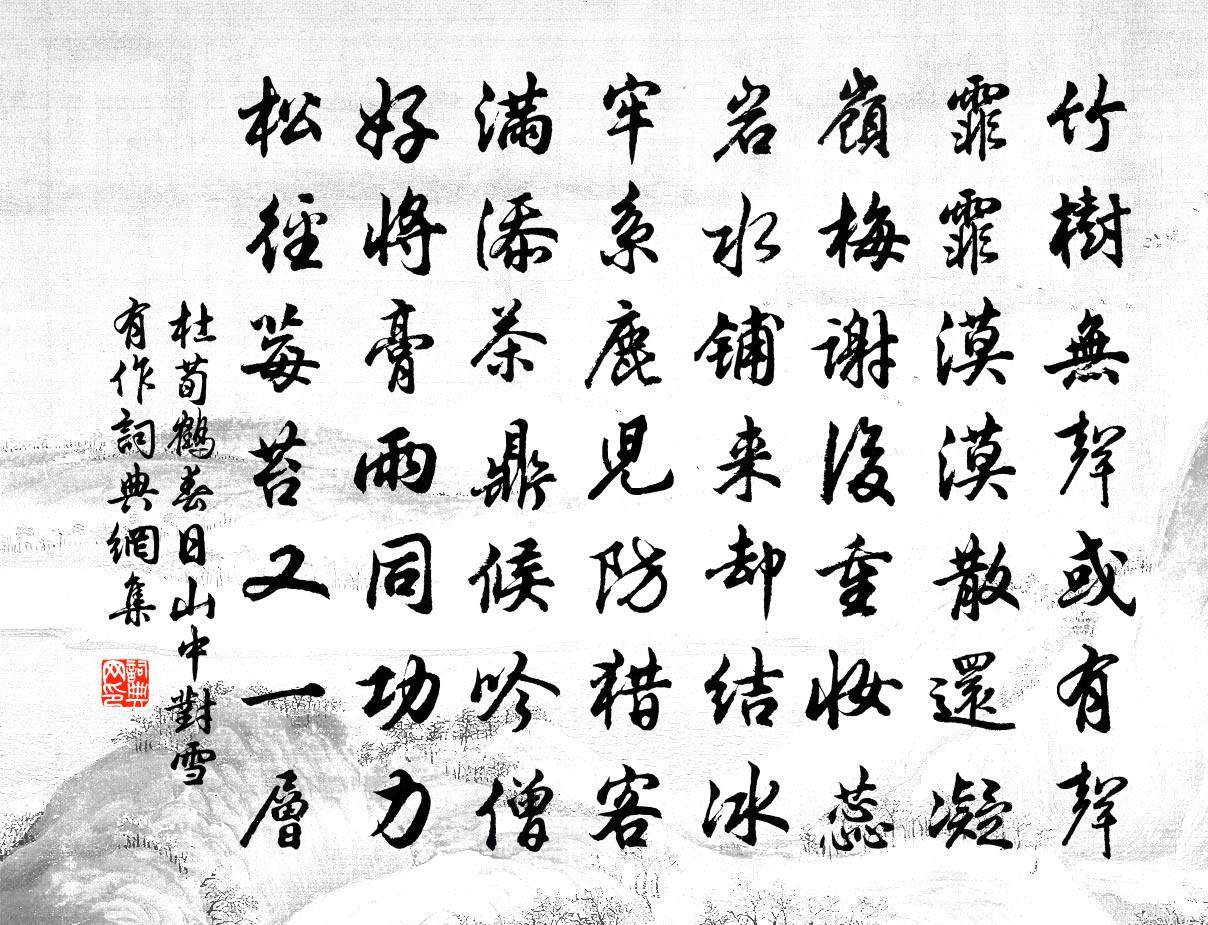 竹樹無聲或有聲
霏霏漠漠散還凝
嶺梅謝後重妝蕊
岩水鋪来却結冰
牢系鹿児防猎客
滿添茶鼎候吟僧
好將膏雨同功力
松徑莓苔又一層
杜荀鶴春日山中對雪
有作詞典網集
詞典
网印